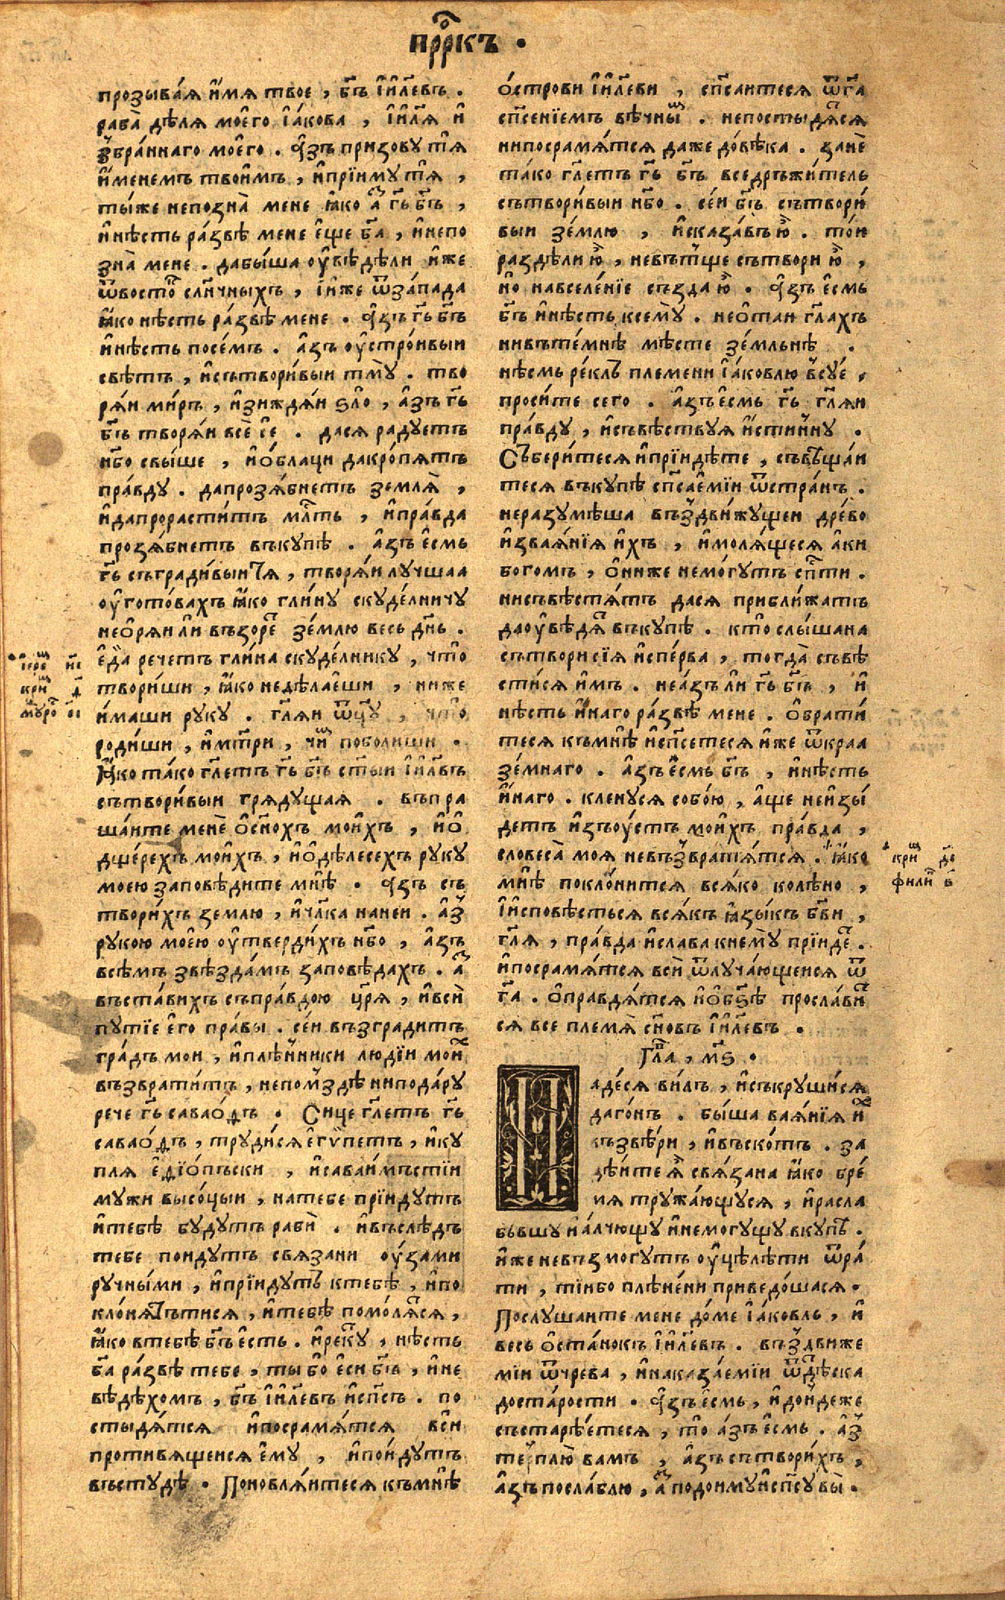 прⷪ҇ркъ .
прозыва́ѧ и҆́мѧ твое , бг҃ъ і҆и҃левъ .
раба̀ дѣлѧ моего̀ і҆а́кова , і҆и҃лѧ и҆
збра́ннаго моего̀ . а҆́зъ призовꙋ тѧ
и҆́менемъ твои́мъ , и҆прїимꙋ тѧ ,
ты́же непозна̀ мене ꙗ҆́ко а҆́зъ гь҃ бг҃ъ ,
и҆нѣ́сть ра́звѣ мене є҆ще бг҃а , и҆непо
зна̀ мене . дабы́ша оу҆вѣ́дѣли и҆́же
ѿвосто́къ сл҃нчныхъ , і҆и́же ѿза́пада
ꙗ҆́ко нѣ́сть ра́звѣ мене . а҆́зъ гь҃ бг҃ъ
и҆нѣ́сть посе́мъ . а҆́зъ оу҆стро́ивыи
свѣ́тъ , и҆сътвори́выи тмꙋ̀ . тво
рѧ́и ми́ръ , и҆зижда́и ѕло̀ , а҆́зъ гь҃
бг҃ъ творѧ́и всѐ сѐ . дасѧ ра́дꙋетъ
нб҃о свы́ше , и҆ѻ҆́блаци дакропѧ́тъ
пра́вдꙋ . дапрозѧ́бнетъ землѧ̀ ,
и҆дапрорасти́тъ мл҃ть , и҆пра́вда
прозѧ́бнетъ въкꙋ́пѣ . а҆́зъ є҆́смь
гь҃ съгради́выи тѧ , творѧ́и лꙋ́чшаа
оу҆гото́вахъ ꙗ҆́ко гли́нꙋ скꙋде́лничꙋ
нео҆рѧ́и ли възоре́тъ зе́млю весь дн҃ь .
є҆да̀ рече́тъ гли́на скꙋде́лникꙋ , что̀
твори́ши , ꙗ҆́ко недѣ́лаеши , ниже
и҆́маши рꙋкꙋ . гл҃ѧи ѿц҃ꙋ , что̀
роди́ши , и҆мт҃ри , чи́мъ поболи́ши .
Ꙗ҆́ко та́ко гл҃етъ гь҃ бг҃ъ ст҃ыи і҆и҃лвъ
сътвори́выи грѧдꙋ́щаѧ . въпра
ша́ите менѐ ѻ҆сн҃охъ мои́хъ , и҆ѻ҆
дще́рехъ мои́хъ , и҆ѻ҆дѣ́лесехъ рꙋкꙋ
моею заповѣ́дите мнѣ̀ . а҆́зъ съ
твори́хъ зе́млю , и҆чл҃ка нане́и . а҆́зъ
рꙋкою мое́ю оу҆тверди́хъ нб҃о , а҆́зъ
всѣ́мъ звѣ́здамъ заповѣ́дахъ . а҆́зъ
въста́вихъ съпра́вдою цр҃ѧ , и҆всѝ
пꙋтїе є҆го̀ пра́вы . се́и възгради́тъ
гра́дъ мои , и҆плѣ́нники люді́и мои́хъ
възврати́тъ , непомздѣ̀ нипода́рꙋ
речѐ гь҃ савао́ѳъ . Си́це гл҃етъ гь҃
савао́ѳъ , трꙋди́сѧ є҆гѷпетъ , и҆кꙋ
плѧ є҆ѳїѻ́пьски , и҆саваи́мьстїи
мꙋжи высо́цыи , натебѐ прїи́дꙋтъ
и҆тебѣ̀ бꙋ́дꙋтъ рабѝ . и҆въслѣ́дъ
тебѐ пои́дꙋтъ свѧ́зани оу҆́зами
рꙋчны́ми , и҆прїи́дꙋтъ ктебѣ̀ , и҆по
кло́нѧтътисѧ , и҆тебѣ̀ помо́лѧтсѧ ,
ꙗ҆́ко втебѣ̀ бг҃ъ є҆сть . и҆реку́тъ , нѣ́сть
бг҃а ра́звѣ тебѐ , ты бо є҆сѝ бг҃ъ , и҆не
вѣ́дѣхомъ , бг҃ъ і҆и҃левъ и҆сп҃съ . по
стыдѧ́тсѧ и҆посра́мѧтсѧ всѝ
противѧ́щеисѧ є҆мꙋ̀ , и҆пои́дꙋтъ
въстꙋдѣ̀ . Поновлѧ́итесѧ къмнѣ̀
ѻ҆́строви і҆и҃леви , сп҃саитесѧ ѿгг҃а
сп҃се́нїемъ вѣ́чнымъ . непостыдѧ́тсѧ
нипосра́мѧтсѧ да́же до́вѣка . занѐ
та́ко гл҃етъ гь҃ бг҃ъ вседръжи́тель
сътвори́выи нб҃о . се́и бг҃ъ сътвори́
выи зе́млю , и҆сказа́въ ю҆̀ . то́и
раздели ю҆̀ , невътще сътвори ю҆̀ ,
но навселе́нїе създа ю҆̀ . а҆́зъ є҆́смь
бг҃ъ и҆нѣ́сть ксемꙋ̀ . неѡ҆таи гл҃ахъ
нивъте́мнѣ мѣ́сте зе́мльнѣ .
нѣ́смь ре́клъ пле́мени і҆а́ковлю всꙋе́ ,
проси́те сего . а҆́зъ є҆́смь гь҃ гл҃ѧи
пра́вдꙋ , и҆съвѣ́ствꙋѧ и҆́стиннꙋ .
Събери́тесѧ и҆прїидѣ́те , съвѣща́и
тесѧ въкꙋ́пѣ сп҃са́емїи ѿстра́нъ .
неразꙋмѣ́ша въздви́жꙋщеи дре́во
и҆звая́нїѧ и҆́хъ , и҆молѧ́щесѧ а҆́ки
бого́мъ , ѻ҆ни́же немо́гꙋтъ сп҃сти .
нисъвѣ́стѧтъ дасѧ прибли́жатъ
даоу҆вѣ́дѧтъ въкꙋ́пѣ . кто̀ слы́шана
сътвори сїѧ и҆спе́рва , тогда̀ съвѣ
сти́сѧ и҆́мъ . неа́зъ ли гь҃ бг҃ъ , и҆
нѣ́сть и҆́наго ра́звѣ мене . ѻ҆брати́
тесѧ къмнѣ̀ и҆сп҃сетесѧ и҆́же ѿкраа
зе́мнаго . а҆́зъ є҆́смь бг҃ъ , и҆нѣ́сть
и҆́наго . кленꙋсѧ собо́ю , а҆́ще неизы́
детъ и҆зъоу́стъ мои́хъ пра́вда ,
словеса̀ моѧ невъзвратѧ́тсѧ . ꙗ҆́ко
мнѣ̀ покло́нитсѧ всѧ́ко колѣ́но ,
і҆и҆сповѣ́стьсѧ всѧ́къ ꙗ҆зы́къ бг҃ви ,
гл҃ѧ , пра́вда и҆слава кнемꙋ̀ прїи́детъ .
и҆посра́мѧтсѧ всѝ ѿлꙋча́ющеисѧ ѿ
гг҃а . ѻ҆правдѧ́тсѧ и҆ѻ҆бз҃ѣ просла́вит
сѧ все пле́мѧ сн҃овъ і҆и҃левъ .
Гла҃ , м҃ѕ .
Падесѧ ви́лъ , и҆съкрꙋши́сѧ
даго́нъ . бы́ша ваѧ́нїѧ и҆хъ
къзвѣ́ри , и҆въско́тъ . за
дѣ́ите ѧ҆̀ свѧ́зана ꙗ҆́ко бре́
мѧ трꙋжа́ющꙋсѧ , и҆расла
бьвшꙋ и҆а́лчющꙋ и҆немогꙋщꙋ вкꙋ́пѣ .
и҆́же невъзмо́гꙋтъ оу҆цѣлѣ́ти ѿра́
ти , тїибо плѣне́ни приведо́шасѧ .
Послꙋ́шаите мене до́ме і҆а́ковль , и҆
весь ѻ҆ста́нокъ і҆и҃левъ . въздвиже
мїи ѿчре́ва , и҆наказа́емїи ѿдѣ́тска
доста́рости . а҆́зъ є҆́смь , и҆до́ндеже
състарѣ́етесѧ , то а҆́зъ є҆́смь . а҆́зъ
те́рплю̀ ва́мъ , а҆́зъ сътвори́хъ ,
а҆́зъ посла́блю , а҆́зъ подоимꙋ̀ и҆сп҃сꙋ вы̀ .